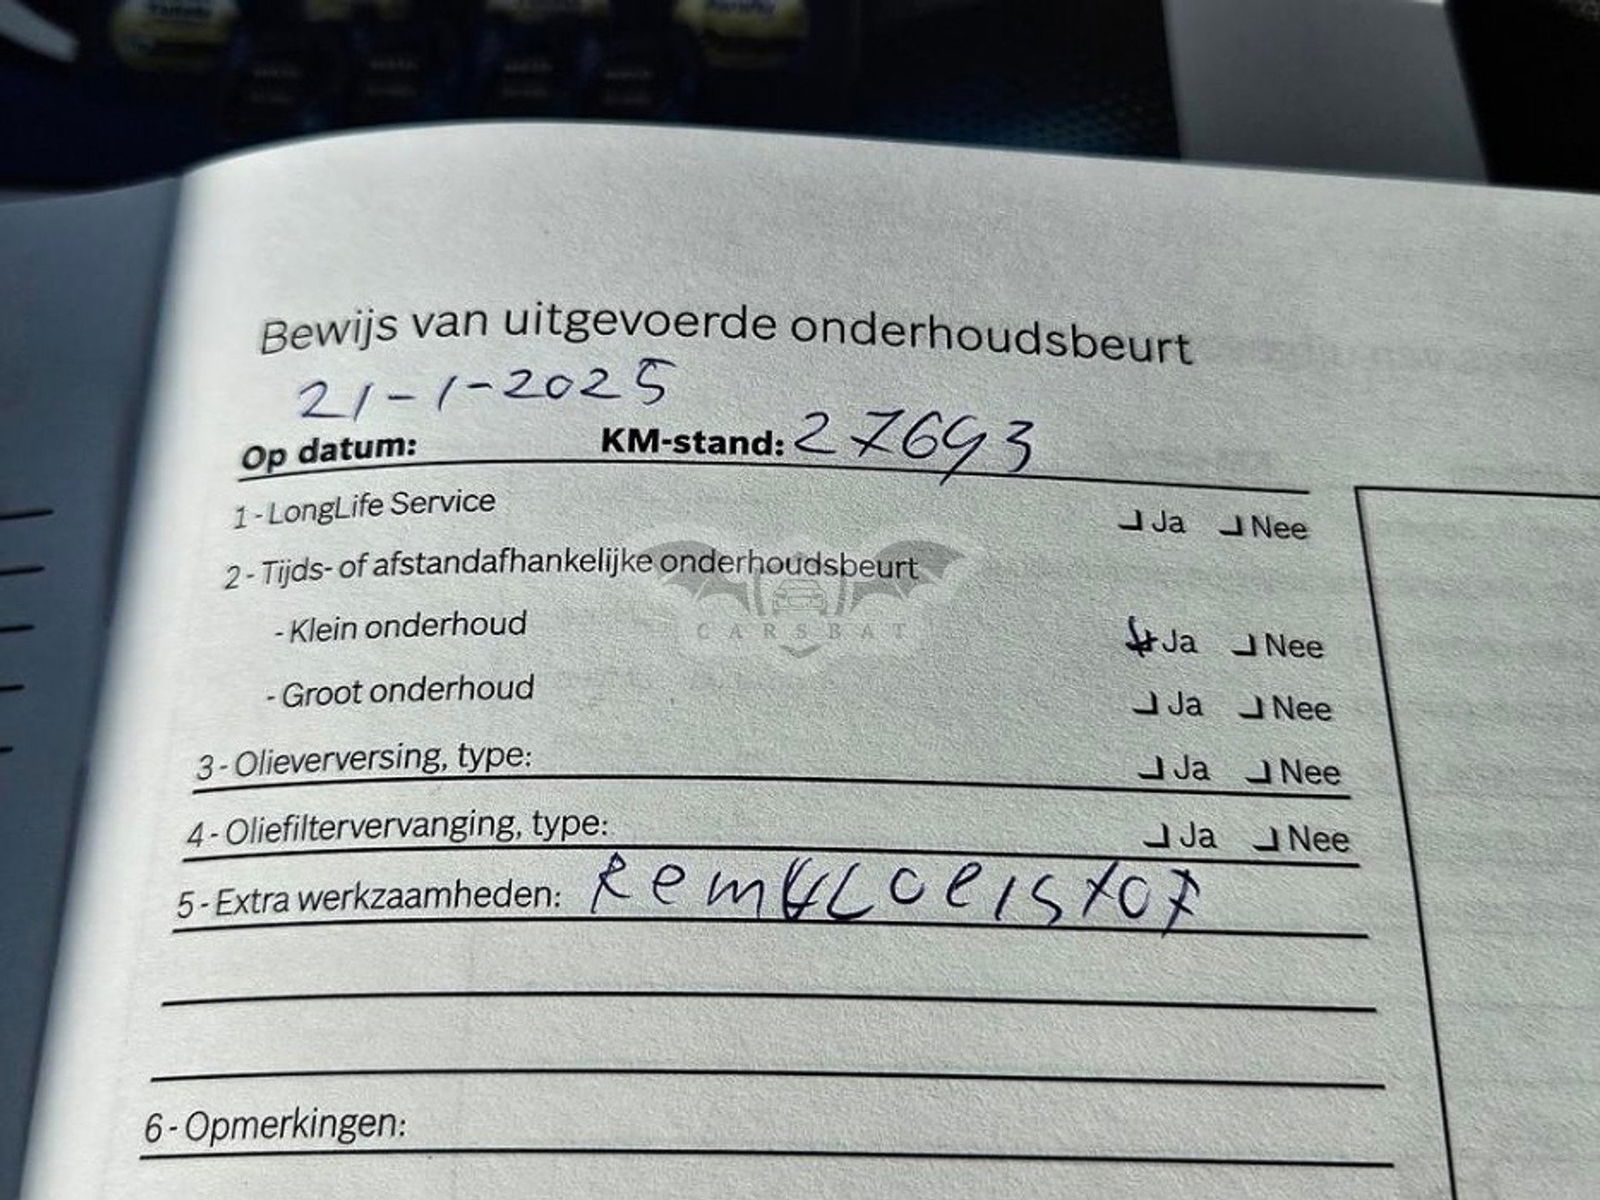 Bewijs van uitgevoerde onderhoudsbeurt
21-1-2025
Op datum: KM-stand: 27693
1 - LongLife Service Ja Nee
2 - Tijds- of afstandafhankelijke onderhoudsbeurt
- Klein onderhoud Ja Nee
CARSBAT
- Groot onderhoud Ja Nee
3 - Olieverversing, type: Ja Nee
4 - Oliefiltervervanging, type: Ja Nee
5 - Extra werkzaamheden: Remvloeistof
6 - Opmerkingen: